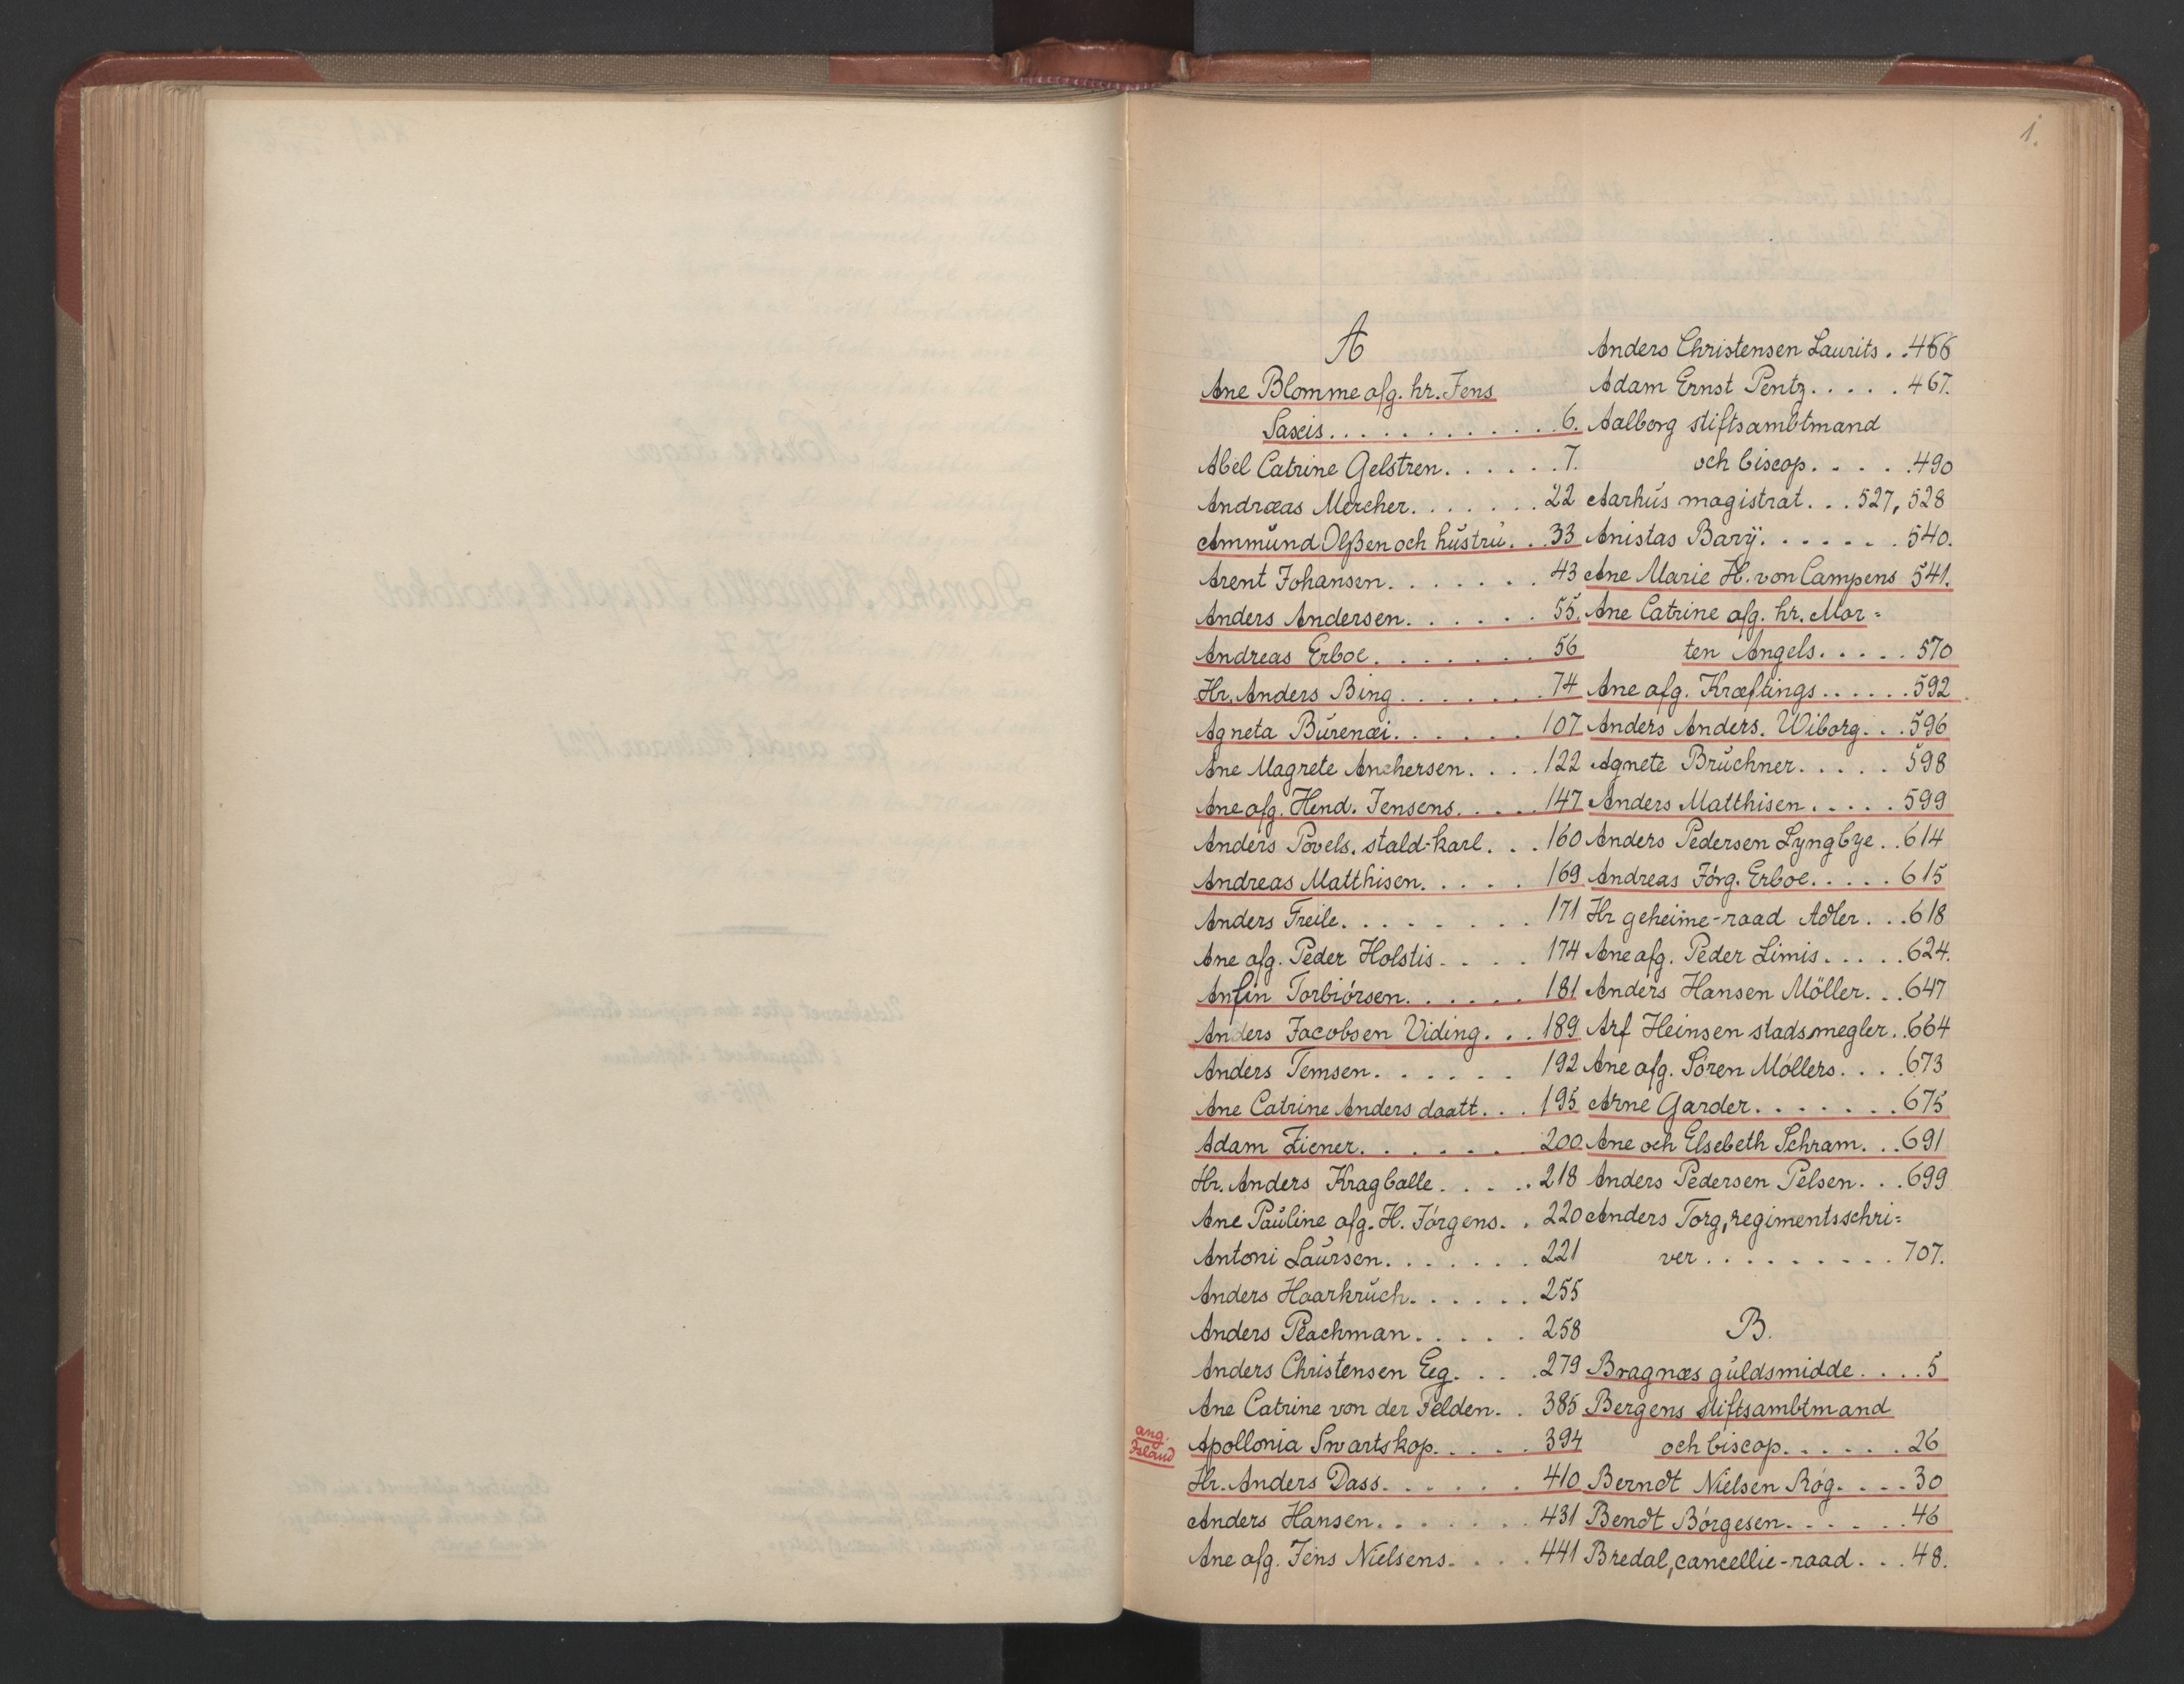 1.
A
Ane Blomme afg. hr. Jens
Saxis. . . . . . . . . . . . 6.
Abel Catrine Gelstren. . . . . . 7.
Andræas Mercher. . . . . . . 22
Ammŭnd Olβen och hŭstrŭ. . . 33
Arent Johansen. . . . . . . 43
Anders Andersen. . . . . . . 55.
Andreas Erboe. . . . . . . . 56
Hr. Anders Bing. . . . . . . 74
Agneta Bŭrenæi. . . . . . . 107
Ane Magrete Anchersen. . . . 122
Ane afg. Hend. Jensens. . . . . 147
Anders Povels. stald-karl. . . 160
Andreas Matthisen. . . . . 169
Anders Freile. . . . . . . . . 171
Ane afg. Peder Holstis. . . . 174
Anfin Torbiörsen. . . . . . . 181
Anders Jacobsen Viding. . . 189
Anders Temsen. . . . . . . 192
Ane Catrine Anders daatt. . . 195
Adam Ziener. . . . . . . . 200
Hr. Anders Kragballe. . . . . 218
Ane Paŭline afg. H. Jörgens. . 220
Antoni Laŭrsen. . . . . . . 221
Anders Haarkrŭch. . . . . . 255
Anders Plachman. . . . . 258
Anders Christensen Eeg. . . . 279
Ane Catrine von der Felden. . 385
ang.
Island
Apollonia Swartskop. . . . . 394
Hr. Anders Dass. . . . . . . 410
Anders Hansen. . . . . . . 431
Ane afg. Jens Nielsens. . . . 441
Anders Christensen Laurits. . 466
Adam Ernst Pentz. . . . . 467.
Aalborg stiftsambtmand
och biscop. . . . . 490
Aarhŭs magistrat. . . 527, 528
Anistas Barÿ. . . . . . . 540.
Ane Marie H. von Campens 541.
Ane Catrine afg. hr. Mor=
ten Angels. . . . . 570
Ane afg. Kræftings. . . . . . 592
Anders Anders. Wiborg. . . 596
Agnete Brŭchner. . . . . 598
Anders Matthisen. . . . . 599
Anders Pedersen Lyngbye. . 614
Andreas Jörg. Erboe. . . . . 615
Hr geheime-raad Adler. . . 618
Ane afg. Peder Limis. . . . . 624.
Anders Hansen Möller. . . 647
Arf Heinsen stadsmegler. . 664
Ane afg. Sören Möllers. . . . 673
Arne Garder. . . . . . . 675
Ane och Elsebeth Schram. . . 691
Anders Pedersen Pelsen. . . 699
Anders Torg, regimentsschri=
ver. . . . . . . . . . 707.
B.
Bragnæs gŭldsmidde. . . . 5
Bergens stiftsambtmand
och biscop. . . . . . 26
Berndt Nielsen Rög. . . . 30
Bendt Börgesen. . . . . . 46
Bredal, cancellie-raad. . . 48.